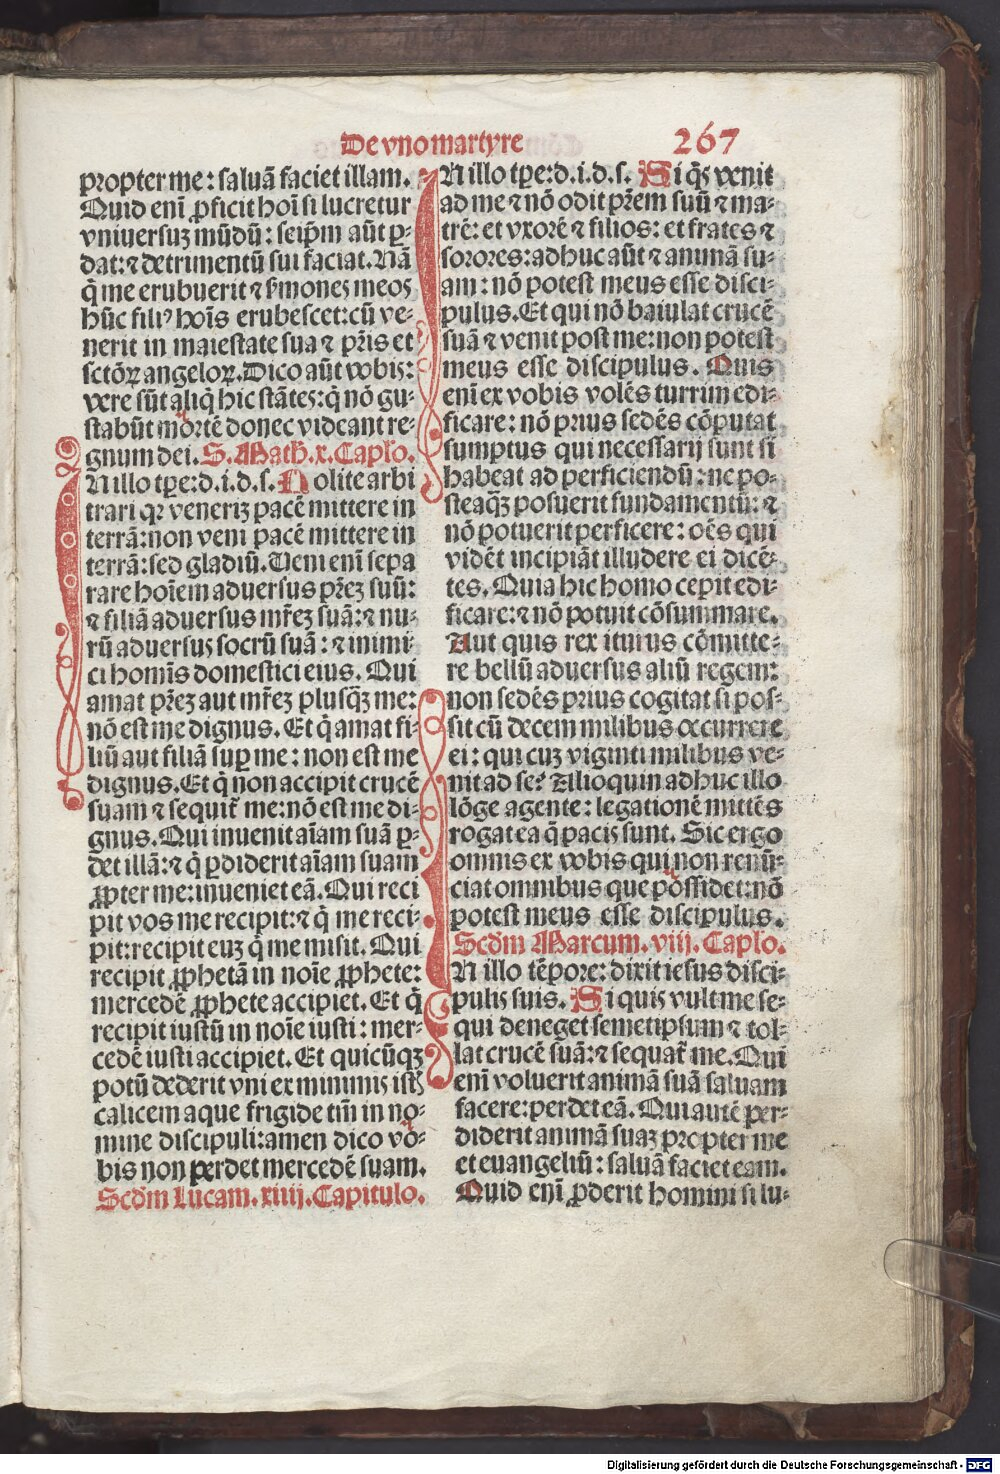 De vno martyre 267
propter me: saluã faciet illam.
Quid enĩ ꝓficit hoĩ si lucretur
vniuersuʒ mũdũ: seip̃m aũt ꝑ-
dat: ⁊ detrimentũ sui faciat. Nã
q̃ me erubuerit ⁊ ẜmones meos
hũc filiꝰ hoĩs erubescet: cũ ve-
nerit in maiestate sua ⁊ p̃ris et
sctõꝝ angeloꝝ. Dico aũt vobis:
vere sũt aliq̃ hic stãtes: q̃ nõ gu-
stabũt mortẽ donec videant re-
gnum dei. S. Math̃. x. Caplo.
IN illo tp̃e: d. i. d. s. Nolite arbi
trari qꝛ veneriʒ pacẽ mittere in
terrã: non veni pacẽ mittere in
terrã: sed gladiũ. Ueni enĩ sepa
rare hoĩem aduersus pr̃eʒ suũ:
⁊ filiã aduersus mr̃eʒ suã: ⁊ nu-
rũ aduersus socrũ suã: ⁊ inimi-
ci homĩs domestici eius. Qui
amat pr̃eʒ aut mr̃eʒ plusq̃ʒ me:
nõ est me dignus. Et q̃ amat fi-
liũ aut filiã suꝑ me: non est me
dignus. Et q̃ non accipit crucẽ
suam ⁊ sequit̃ me: nõ est me di-
gnus. Qui inuenit aĩam suã ꝑ-
det illã: ⁊ q̃ ꝑdiderit aĩam suam
ꝓpter me: inueniet eã. Qui reci
pit vos me recipit: ⁊ q̃ me reci-
pit: recipit euʒ q̃ me misit. Qui
recipit ꝓphetã in noĩe ꝓphete:
mercedẽ ꝓphete accipiet. Et q̃
recipit iustũ in noĩe iusti: mer-
cedẽ iusti accipiet. Et quicũqʒ
potũ dederit vni ex minimis istis
calicem aque frigide tm̃ in no-
mine discipuli: amen dico vo-
bis non perdet mercedẽ suam.
Scd̃m Lucam. xiiij. Capitulo.
IN illo tp̃e: d. i. d. s. Si q̃s venit
ad me ⁊ nõ odit pr̃em suũ ⁊ ma-
trẽ: et vxorẽ ⁊ filios: et frates ⁊
sorores: adhuc aũt ⁊ animã su-
am: nõ potest meus esse disci-
pulus. Et qui nõ baiulat crucẽ
suã ⁊ venit post me: non potest
meus esse discipulus. Quis
enĩ ex vobis volẽs turrim edi-
ficare: nõ prius sedẽs cõputat
sumptus qui necessarij sunt si
habeat ad perficiendũ: ne po-
steaq̃ʒ posuerit fundamentũ: ⁊
nõ potuerit perficere: oẽs qui
vidẽt incipiãt illudere ei dicẽ-
tes. Quia hic homo cepit edi-
ficare: ⁊ nõ potuit cõsummare.
Aut quis rex iturus cõmitte-
re bellũ aduersus aliũ regem:
non sedẽs prius cogitat si pos-
sit cũ decem milibus occurrere
ei: qui cuʒ viginti milibus ve-
nit ad se? Alioquin adhuc illo
lõge agente: legationẽ mittẽs
rogat ea q̃ pacis sunt. Sic ergo
omnis ex vobis qui non renũ-
ciat omnibus que possidet: nõ
potest meus esse discipulus.
Scd̃m Marcum. viij. Caplo.
IN illo tẽpore: dixit iesus disci-
pulis suis. Si quis vult me se-
qui deneget semetipsum ⁊ tol-
lat crucẽ suã: ⁊ sequat̃ me. Qui
enĩ voluerit animã suã saluam
facere: perdet eã. Qui autẽ per-
diderit animã suaʒ propter me
et euangeliũ: saluã faciet eam.
Quid enĩ ꝓderit homini si lu-
Digitalisierung gefördert durch die Deutsche Forschungsgemeinschaft - DFG